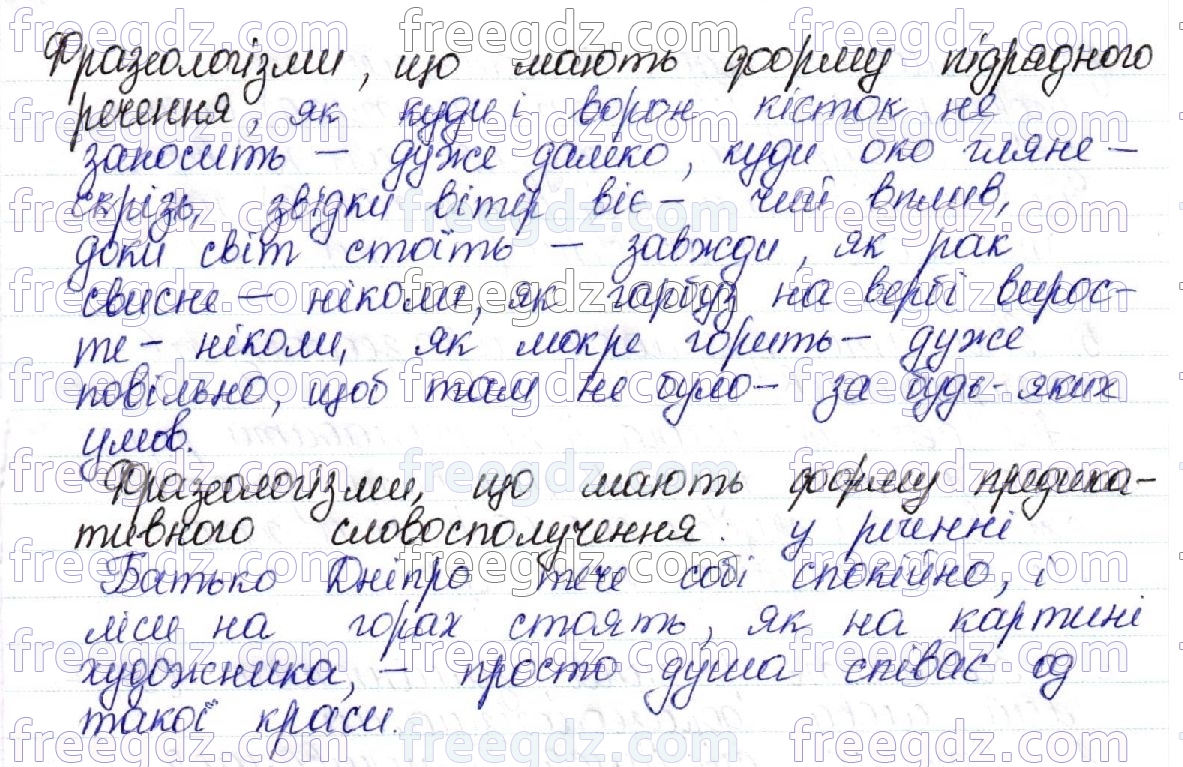 Фразеологізми, що мають форму підрядного
речення, як куди і ворон кісток не
заносить – дуже далеко, куди око гляне –
скрізь, звідки вітер віє – чий вплив,
доки світ стоїть – завжди, як рак
свисне – ніколи, як гарбуз на вербі вирос-
те – ніколи, як мокре горить – дуже
повільно, щоб там не було – за будь-яких
умов.
Фразеологізми, що мають форму предика-
тивного словосполучення: у реченні
Батько Дніпро тече собі спокійно, і
ліси на горах стоять, як на картині
художника, – просто душа співає од
такої краси.